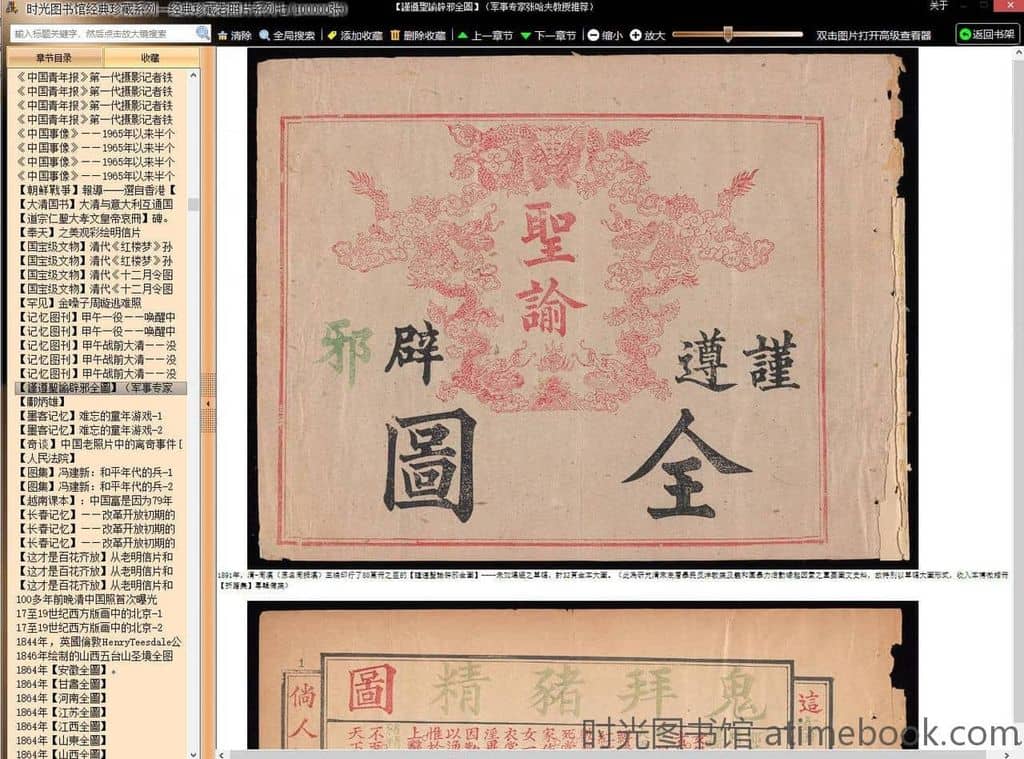 时光图书馆经典珍藏系列—经典珍藏老照片系列七(100000张)
【謹遵聖諭辟邪全圖】（军事专家张哈夫教授推荐）
关于
输入标题关键字，然后点击放大镜搜索
清除
全局搜索
添加收藏
删除收藏
上一章节
下一章节
缩小
放大
双击图片打开高级查看器
返回书架
章节目录
收藏
《中国青年报》第一代摄影记者铁
《中国青年报》第一代摄影记者铁
《中国青年报》第一代摄影记者铁
《中国青年报》第一代摄影记者铁
《中国事像》——1965年以来半个
《中国事像》——1965年以来半个
《中国事像》——1965年以来半个
《中国事像》——1965年以来半个
【朝鲜戰爭】報導——選自香港【
【大清国书】大清与意大利互通国
【道宗仁聖大孝文皇帝哀冊】碑。
【奉天】之美观彩绘明信片
【国宝级文物】清代《红楼梦》孙
【国宝级文物】清代《红楼梦》孙
【国宝级文物】清代《十二月令图
【国宝级文物】清代《十二月令图
【罕见】金嗓子周璇逃难照
【记忆图刊】甲午一役——唤醒中
【记忆图刊】甲午一役——唤醒中
【记忆图刊】甲午战前大清——没
【记忆图刊】甲午战前大清——没
【记忆图刊】甲午战前大清——没
【謹遵聖諭辟邪全圖】（军事专家
【鄺炳雄】
【墨客记忆】难忘的童年游戏-1
【墨客记忆】难忘的童年游戏-2
【奇谈】中国老照片中的离奇事件[
【人民法院】
【图集】冯建新：和平年代的兵-1
【图集】冯建新：和平年代的兵-2
【越南课本】：中国富是因为79年
【长春记忆】——改革开放初期的
【长春记忆】——改革开放初期的
【长春记忆】——改革开放初期的
【这才是百花齐放】从老明信片和
【这才是百花齐放】从老明信片和
【这才是百花齐放】从老明信片和
100多年前晚清中国照首次曝光
17至19世纪西方版画中的北京-1
17至19世纪西方版画中的北京-2
1844年，英國倫敦HenryTeesdale公
1846年绘制的山西五台山圣境全图
1864年【安徽全圖】。
1864年【甘肅全圖】
1864年【河南全圖】
1864年【江苏全圖】
1864年【江西全圖】
1864年【山東全圖】
1864年【山西全圖】
聖諭
謹遵
辟邪
全圖
鬼拜豬精圖
這
倘人
1
时光图书馆 atimebook.com